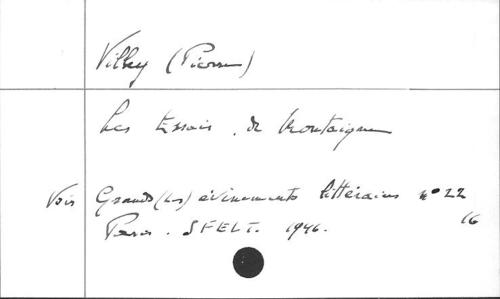 Villey (Pierre)
Les Essais de Montaigne
Voir Grands (Les) évènements littéraires n° 22
Paris. SFELT. 1946. 16